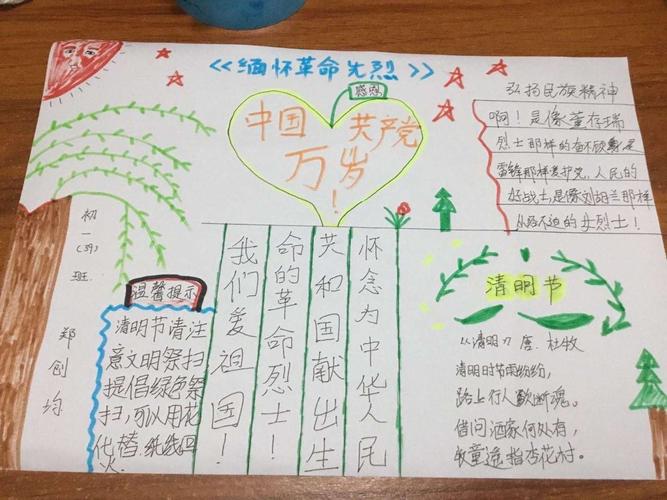 《缅怀革命先烈》
感恩
中国 共产党
万岁！
弘扬民族精神
啊！是像董存瑞
烈士那样的奋不顾身是
雷锋那样爱护党、人民的
好战士,是像刘胡兰那样
从容不迫的女烈士！
初一(39)班
郑创均
温馨提示
清明节请注
意文明祭扫
提倡绿色祭
扫,可以用花
代替
怀念为中华人民
共和国献出生
命的革命烈士！
我们爱祖国！
清明节
《清明》唐．杜牧
清明时节雨纷纷,
路上行人欲断魂。
借问酒家何处有,
牧童遥指杏花村。